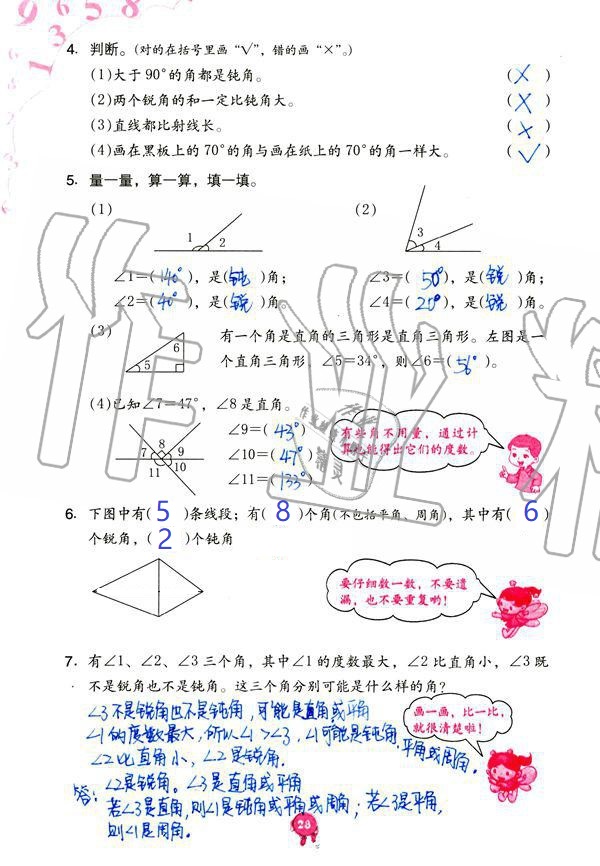 4. 判断。(对的在括号里画“√”, 错的画“×”。)
(1)大于90°的角都是钝角。 (×)
(2)两个锐角的和一定比钝角大。 (×)
(3)直线都比射线长。 (×)
(4)画在黑板上的70°的角与画在纸上的70°的角一样大。 (√)
5. 量一量，算一算，填一填。
(1) (2)
1 2 3 4
∠1=(140°)，是(钝)角； ∠3=(50°)，是(锐)角；
∠2=(40°)，是(锐)角。 ∠4=(20°)，是(锐)角。
(3) 有一个角是直角的三角形是直角三角形。左图是一
6 5
个直角三角形，∠5=34°，则∠6=(56°)。
(4)已知∠7=47°，∠8是直角。
7 8 9 10 11
∠9=(43°)
∠10=(47°)
∠11=(133°)
有些角不用量，通过计
算也能得出它们的度数。
6. 下图中有(5)条线段；有(8)个角(不包括平角、周角)，其中有(6)
个锐角，(2)个钝角
要仔细数一数，不要遗
漏，也不要重复哟！
7. 有∠1、∠2、∠3三个角，其中∠1的度数最大，∠2比直角小，∠3既
不是锐角也不是钝角。这三个角分别可能是什么样的角？
画一画，比一比，
就很清楚啦！
∠3不是锐角也不是钝角，可能是直角或平角
∠1的度数最大，所以∠1>∠3，∠1可能是钝角，平角或周角。
∠2比直角小，∠2是锐角。
答：∠2是锐角。∠3是直角或平角
若∠3是直角，则∠1是钝角或平角或周角；若∠3是平角，
则∠1是周角。
28
作业精灵